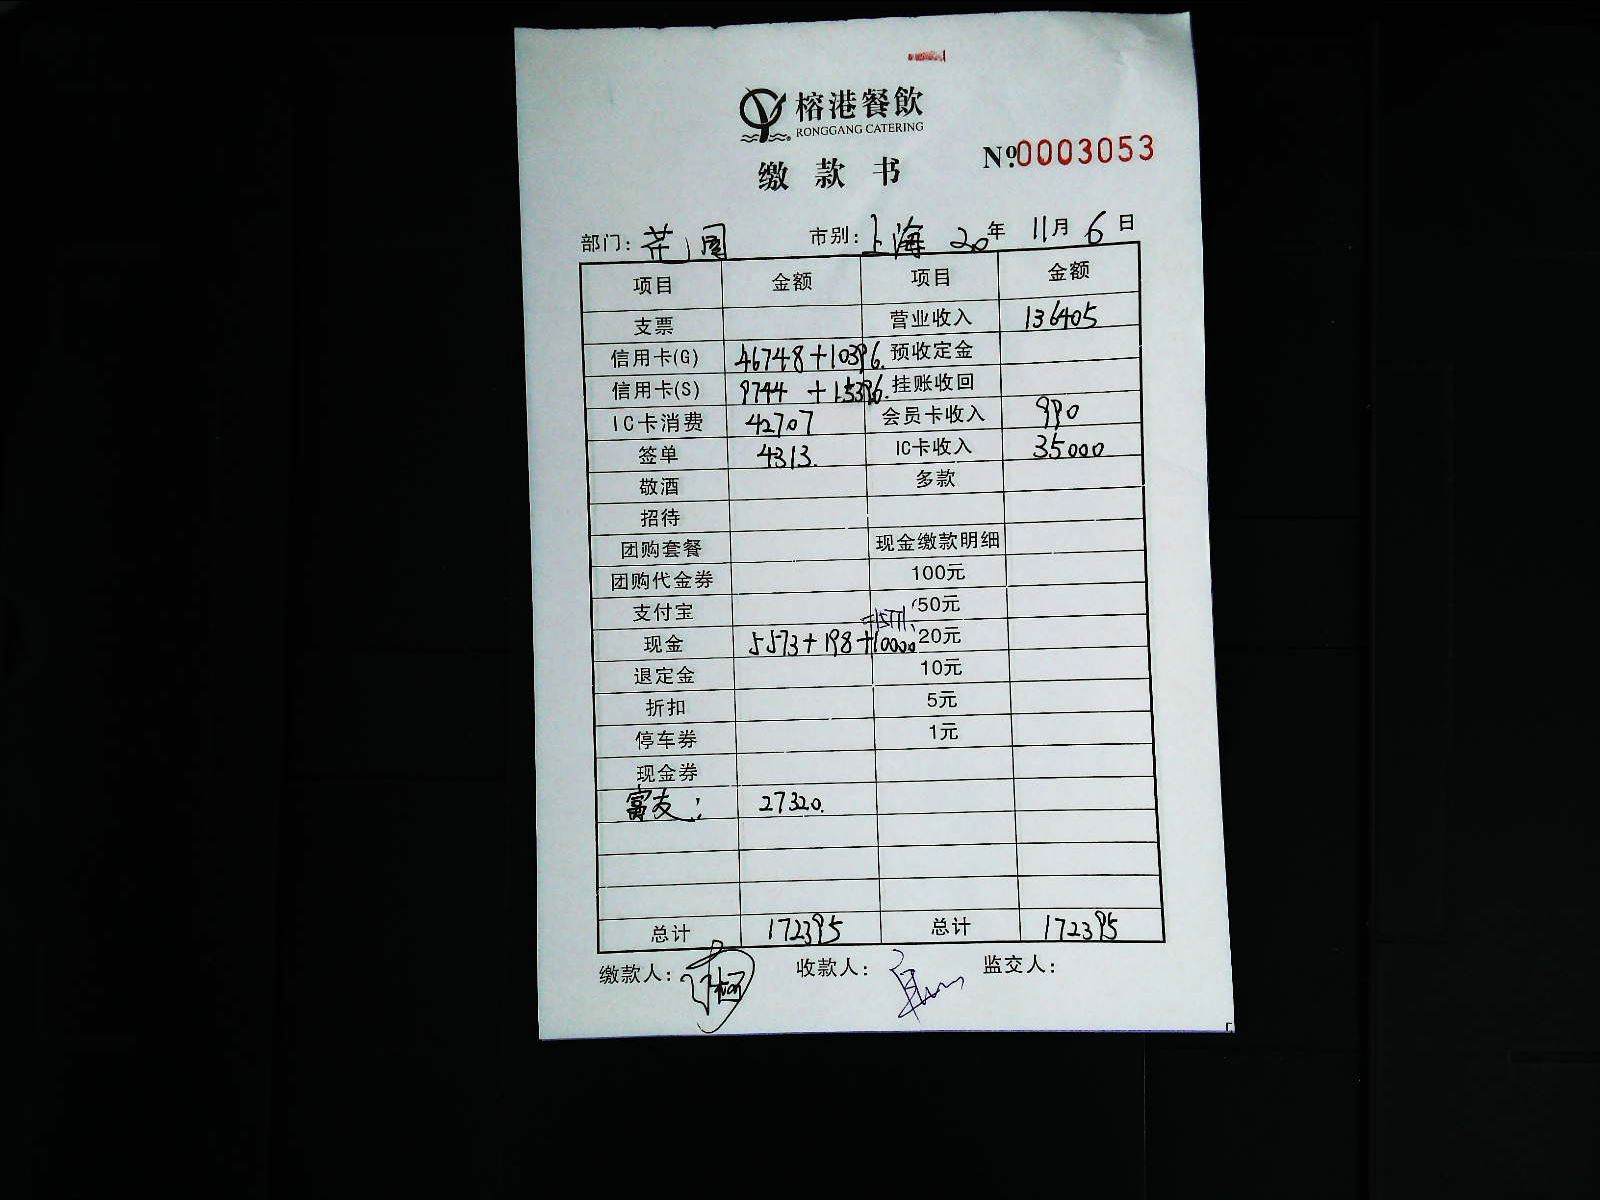 榕港餐飲
RONGGANG CATERING
缴款书
№0003053
部门：花园 市别：上海 20年 11月 6日
项目 金额 项目 金额
支票 营业收入 136405
信用卡(G) 46748+10396. 预收定金
信用卡(S) 9744 +15396. 挂账收回
IC卡消费 42707 会员卡收入 990
签单 4313. IC卡收入 35000
敬酒 多款
招待
团购套餐 现金缴款明细
团购代金券 100元
支付宝 50元
现金 5573+198+10000 20元
退定金 10元
折扣 5元
停车券 1元
现金券
富友： 27320.
总计 172395 总计 172395
缴款人： 收款人： 监交人：